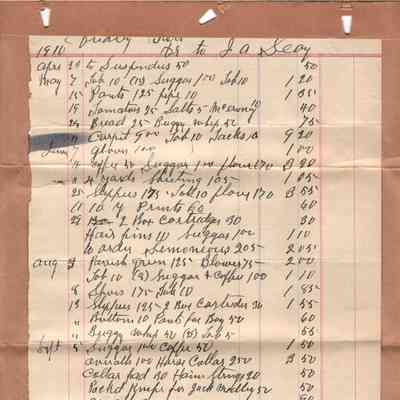 1910 Dr to J A Seay
apr 20 to Suspendes 50 50
May 7 Tob 10 Suggar 1 00 Tob 10 1 20
15 Pants 125 pipe 10 1 35
19 Tomatoes 25 Salts 5 10 40
Bread 25 Buggy whip 50 75
Carpit 9 00 Tob 10 Tacks 10 9 20
June Gloves 1 00 1 00
Coffee 50 Suggar 1 00 flour 170
4 yards Sheeting 1 05 1 05
25 Slippes 175 Tob 10 flour 170 3 55
10 y Prints 60 60
2 Box Cartridges 30 30
Hair pins 10 Suggar 1 00 1 10
to order 205 2 05
aug Parish green 125 Blower 75 2 00
Tob 10 Suggar & Coffee 1 00 1 10
8 Shoes 175 Tob 10 1 85
13 Slippes 125 2 Box Cartrides 30 1 55
" Buttons 10 Pants for Boy 50 60
" Buggy whip 50 Tob 5 55
Sept 5 Suggar 1 00 Coffee 50 1 50
overalls 1 00 Horse Collar 250 3 50
Collar pad 30 Haim Strings 20 50
Pocket Knife for Jack 50 50